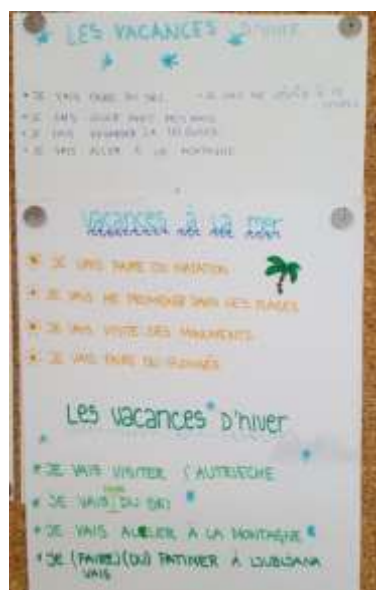 LES VACANCES D'HIVER
• JE VAIS FAIRE DU SKI
• JE VAIS JOUER AVEC MES AMIS
• JE VAIS REGARDER LA TÉLÉVISION
• JE VAIS ALLER À LA MONTAGNE
Vacances à la mer
• JE VAIS FAIRE DU NATATION
• JE VAIS ME PROMENER DANS LES PLAGES
• JE VAIS VISITE DES MONUMENTS
• JE VAIS FAIRE DU
Les vacances D'hiver
• JE VAIS VISITER L'AUTRIECHE
• JE VAIS DU SKI
• JE VAIS ALLER À LA MONTAGNE
• JE (FAIRE)(DU) PATINER À LJUBLJANA
VAIS